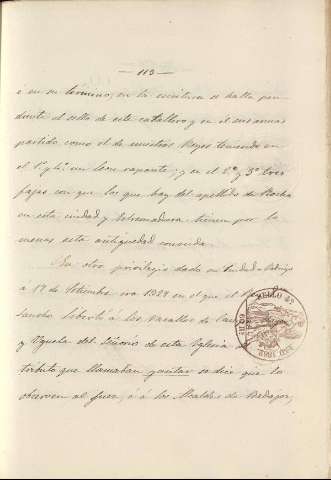 — 113 —
é en su termino, en la escritura se halla pen-
diente el sello de este caballero y en el sus armas
partido como el de nuestros Reyes teniendo en
el 1º y 4º un leon rapante, y en el 2º y 3º tres
fajas con que los que hay del apellido de Rocha
en esta ciudad y Estremadura tienen por lo
menos esta antiguedad conocida.
En otro privilegio dado en Ciudad-Rodrigo
a 17 de Setiembre era 1329 en el que el
Sancho libertó á los Vasallos de
y Uguela del Señorio de esta Iglesia
tributo que llamaban yantar se dice que lo
observen al fuer, é á los Alcaldes de Badajoz,